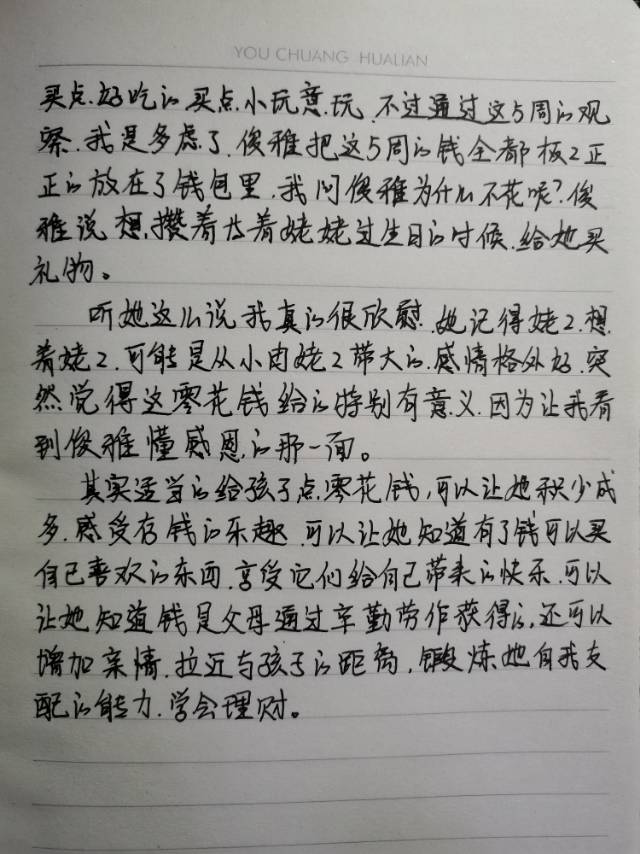 YOU CHUANG HUALIAN
买点.好吃的买点.小玩意.玩.不过通过这5周的观
察.我是多虑了.俊雅把这5周的钱全都板2正
正的放在了钱包里.我问俊雅为什么不花呢?俊
雅说想.攒着等着姥姥过生日的时候.给她买
礼物。
听她这么说我真的很欣慰.她记得姥2.想
着姥2.可能是从小由姥2带大的.感情格外好.突
然觉得这零花钱给的特别有意义.因为让我看
到俊雅懂感恩.的那一面。
其实适当的给孩子点.零花钱,可以让她积少成
多.感受存钱的乐趣.可以让她知道有了钱可以买
自己喜欢的东西.享受它们给自己带来的快乐.可以
让她知道钱是父母通过辛勤劳作获得的,还可以
增加亲情.拉近与孩子的距离,锻炼她自我支
配的能力.学会理财。